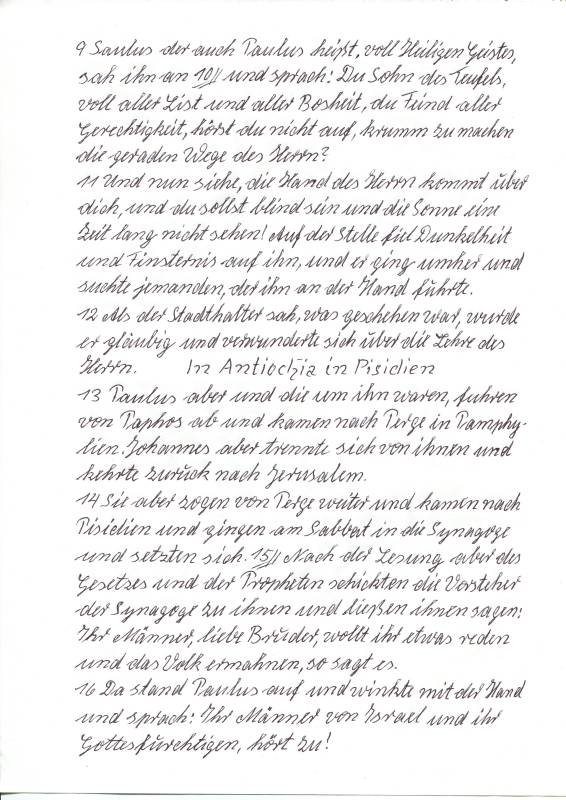 9 Saulus der auch Paulus heißt, voll Heiligen Geistes,
sah ihn an 10// und sprach: Du Sohn des Teufels,
voll aller List und aller Bosheit, du Feind aller
Gerechtigkeit, hörst du nicht auf, krumm zu machen
die geraden Wege des Herrn?
11 Und nun siehe, die Hand des Herrn kommt über
dich, und du sollst blind sein und die Sonne eine
Zeit lang nicht sehen! Auf der Stelle fiel Dunkelheit
und Finsternis auf ihn, und er ging umher und
suchte jemanden, der ihn an der Hand führte.
12 Als der Stadthalter sah, was geschehen war, wurde
er gläubig und verwunderte sich über die Lehre des
Herrn. In Antiochia in Pisidien
13 Paulus aber und die um ihn waren, fuhren
von Paphos ab und kamen nach Perge in Pamphy-
lien. Johannes aber trennte sich von ihnen und
kehrte zurück nach Jerusalem.
14 Sie aber zogen von Perge weiter und kamen nach
Pisidien und gingen am Sabbat in die Synagoge
und setzten sich. 15// Nach der Lesung aber des
Gesetzes und der Propheten schickten die Vorsteher
der Synagoge zu ihnen und ließen ihnen sagen:
Ihr Männer, liebe Brüder, wollt ihr etwas reden
und das Volk ermahnen, so sagt es.
16 Da stand Paulus auf und winkte mit der Hand
und sprach: Ihr Männer von Israel und ihr
Gottesfürchtigen, hört zu!